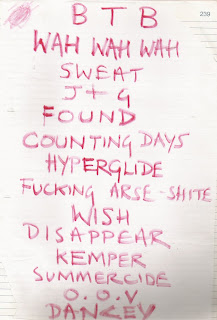 239
B T B
WAH WAH WAH
SWEAT
J + G
FOUND
COUNTING DAYS
HYPERGLIDE
FUCKING ARSE-SHITE
WISH
DISAPPEAR
KEMPER
SUMMERCIDE
O.O.V
DANZEY